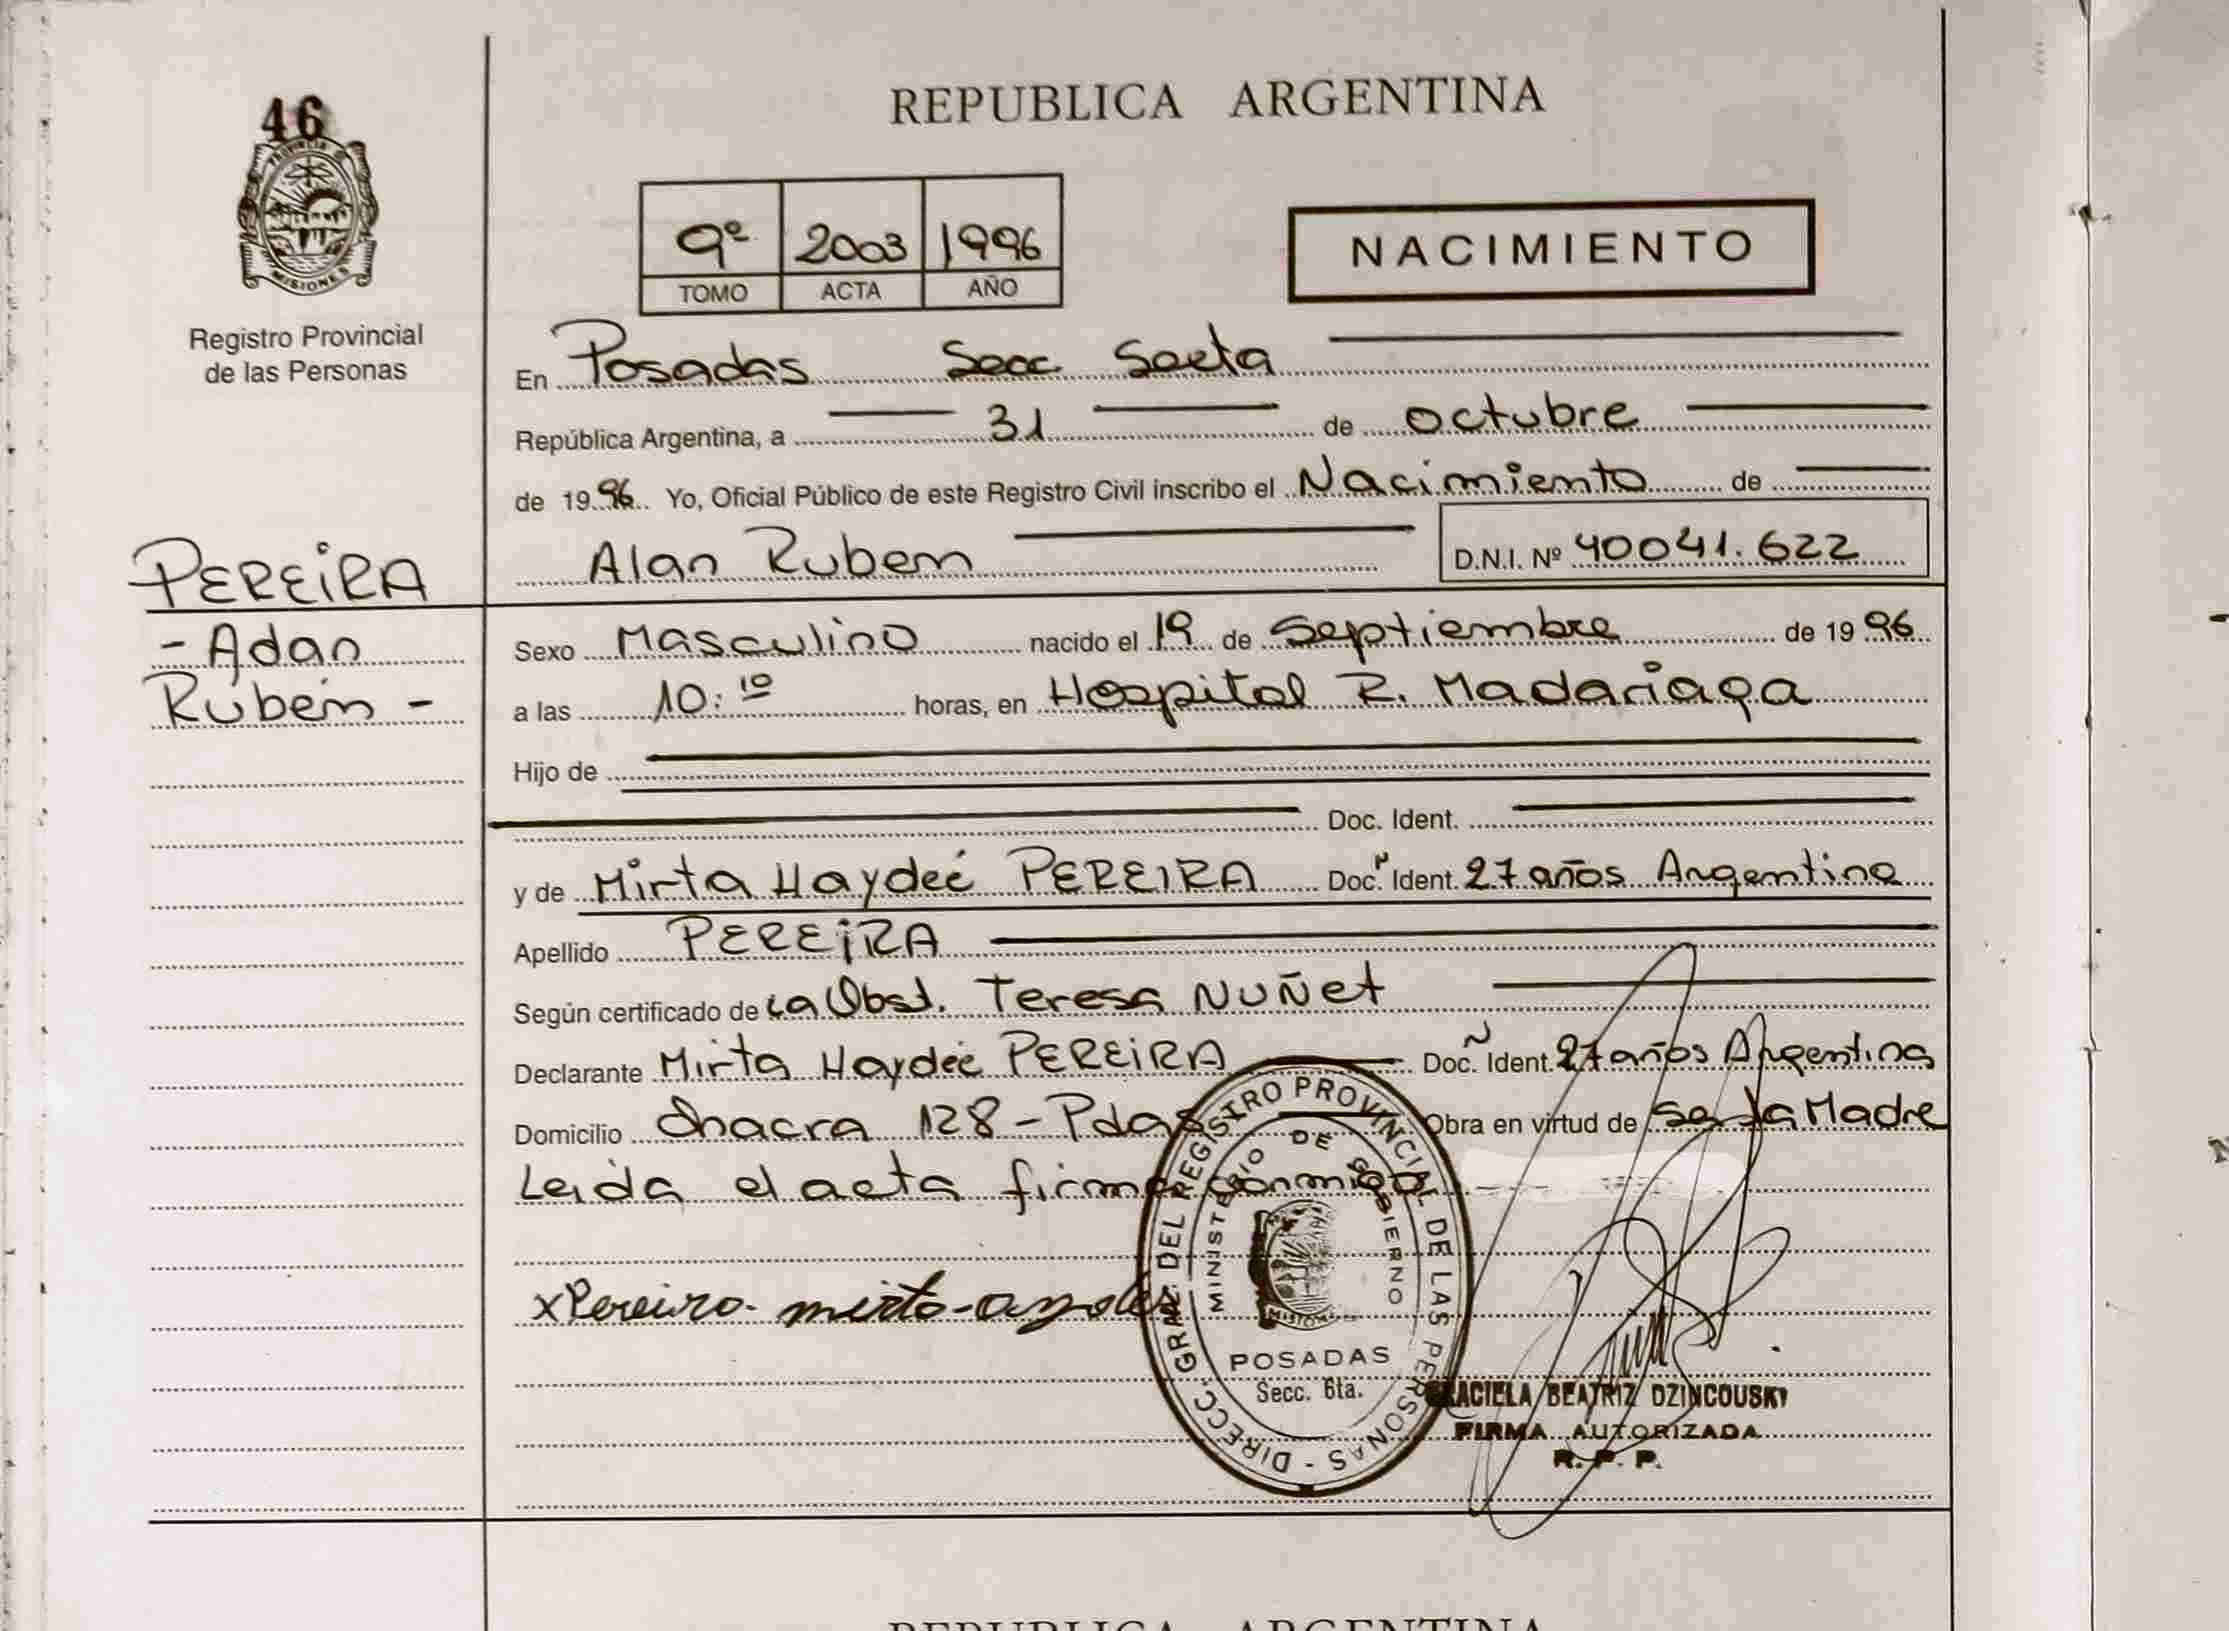 46
PROVINCIA DE
MISIONES
Registro Provincial
de las Personas
PEREIRA
- Adan
Rubén -
REPUBLICA ARGENTINA
9º 2003 1996
TOMO ACTA AÑO
NACIMIENTO
En Posadas Secc Sexta
República Argentina, a 31 de octubre
de 1996 Yo, Oficial Público de este Registro Civil inscribo el Nacimiento de
Alan Ruben D.N.I. Nº 40041.622
Sexo Masculino nacido el 19 de Septiembre de 1996
a las 10:10 horas, en Hospital R. Madariaga
Hijo de
Doc. Ident.
y de Mirta Haydeé PEREIRA Doc. Ident. 27 años Argentina
Apellido PEREIRA
Según certificado de La Obst. Teresa NUÑEt
Declarante Mirta Haydeé PEREIRA Doc. Ident. 27 años Argentina
Domicilio Chacra 128 - Pdas Obra en virtud de Ser la Madre
Leida el acta firma conmigo
x Pereira mirta
DIRECC. GRAL. DEL REGISTRO PROVINCIAL DE LAS PERSONAS -
MINISTERIO DE GOBIERNO
POSADAS
Secc. 6ta.
GRACIELA BEATRIZ DZINCOUSKI
FIRMA AUTORIZADA
R. P. P.
REPUBLICA ARGENTINA